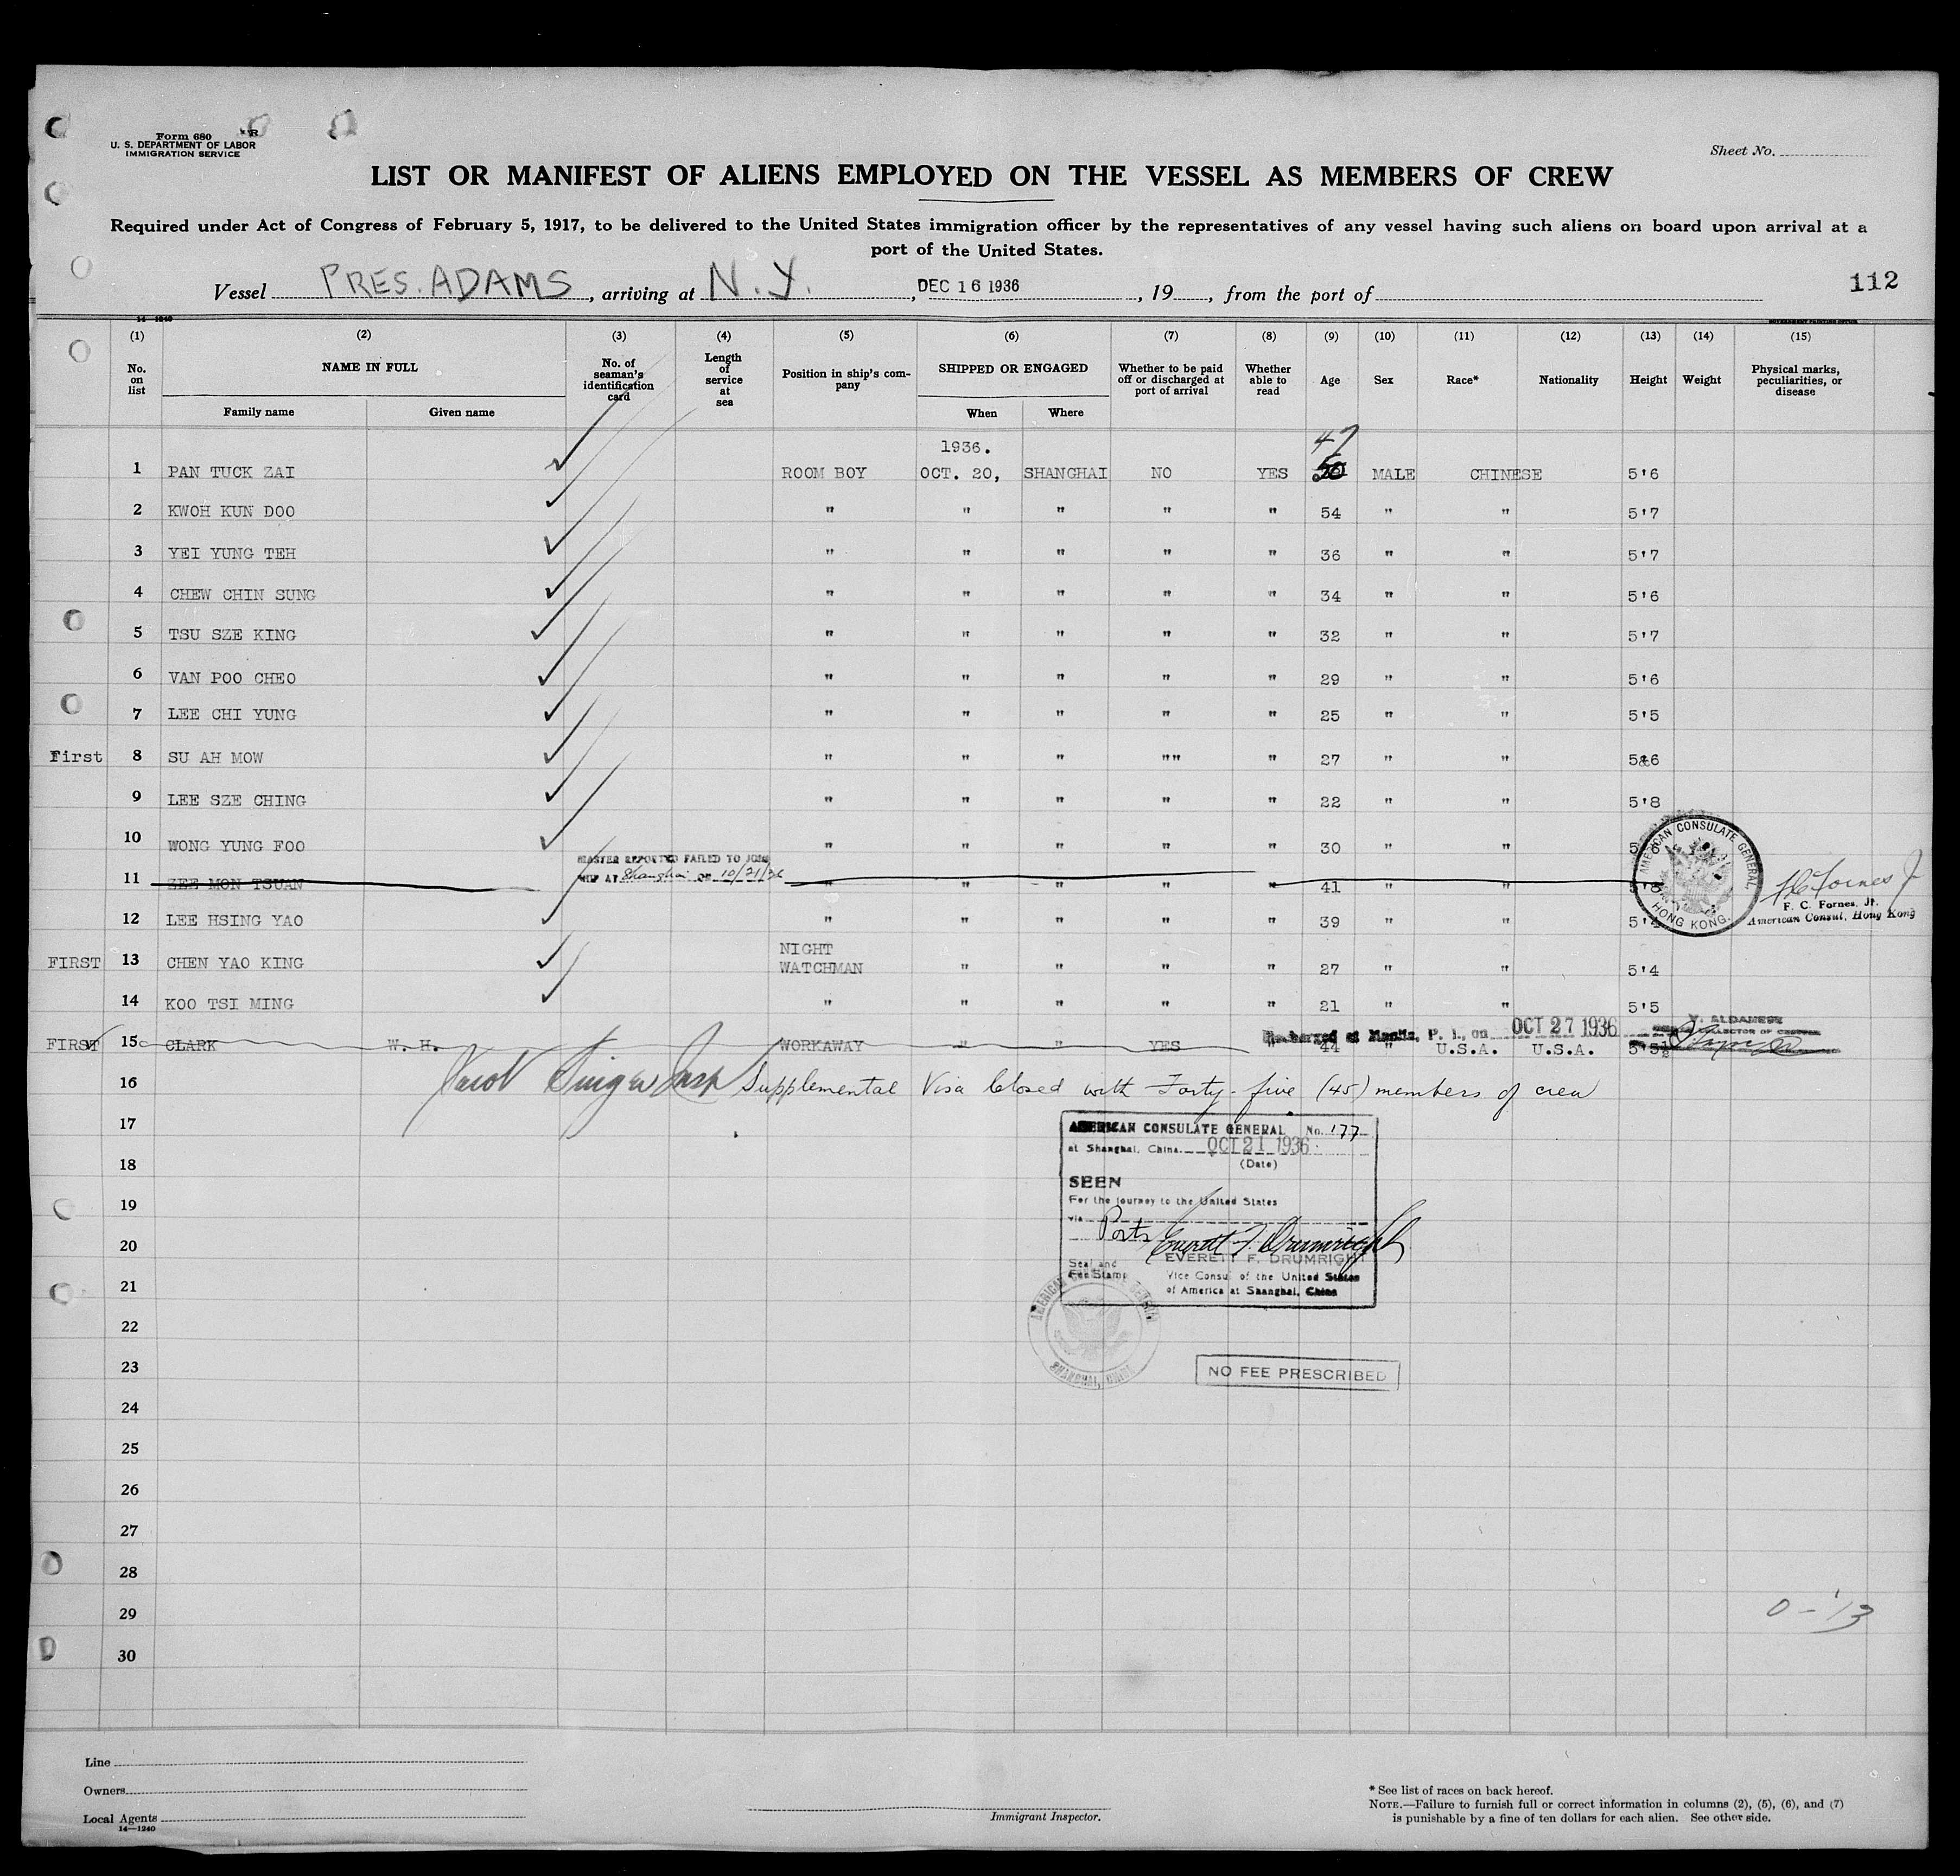 Form 680
U. S. DEPARTMENT OF LABOR
IMMIGRATION SERVICE
Sheet No.
LIST OR MANIFEST OF ALIENS EMPLOYED ON THE VESSEL AS MEMBERS OF CREW
Required under Act of Congress of February 5, 1917, to be delivered to the United States immigration officer by the representatives of any vessel having such aliens on board upon arrival at a
port of the United States.
Vessel PRES. ADAMS, arriving at N. Y., DEC 16 1936, 19, from the port of
112
(1) (2) (3) (4) (5) (6) (7) (8) (9) (10) (11) (12) (13) (14) (15)
No. on list
NAME IN FULL
Family name Given name
No. of seaman's identification card
Length of service at sea
Position in ship's company
SHIPPED OR ENGAGED
When Where
Whether to be paid off or discharged at port of arrival
Whether able to read
Age
Sex
Race*
Nationality
Height
Weight
Physical marks, peculiarities, or disease
1936. 47
1 PAN TUCK ZAI ROOM BOY OCT. 20, SHANGHAI NO YES 50 MALE CHINESE 5'6
2 KWOH KUN DOO " " " " " 54 " " 5'7
3 YEI YUNG TEH " " " " " 36 " " 5'7
4 CHEW CHIN SUNG " " " " " 34 " " 5'6
5 TSU SZE KING " " " " " 32 " " 5'7
6 VAN POO CHEO " " " " " 29 " " 5'6
7 LEE CHI YUNG " " " " " 25 " " 5'5
First 8 SU AH MOW " " " "" " 27 " " 5&6
9 LEE SZE CHING " " " " " 22 " " 5'8
10 WONG YUNG FOO " " " " " 30 " "
MASTER REPORTED FAILED TO JOIN
SHIP AT Shanghai ON 10/21/36
11 ZEE MON TSUAN " " " " " 41 " "
12 LEE HSING YAO " " " " " 39 " "
AMERICAN CONSULATE GENERAL
HONG KONG.
F. C. Fornes, Jr.
American Consul, Hong Kong
FIRST 13 CHEN YAO KING NIGHT WATCHMAN " " " " 27 " " 5'4
14 KOO TSI MING " " " " " 21 " " 5'5
Manila, P. I., on OCT 27 1936
V. ALDANESE
COLLECTOR OF CUSTOMS
FIRST 15 CLARK W. H. WORKAWAY " " YES " 44 " U.S.A. U.S.A. 5'5½
16 Jacob Singer Insp Supplemental Visa Closed with Forty-five (45) members of crew
17
AMERICAN CONSULATE GENERAL No. 177
at Shanghai, China. OCT 21 1936
18
(Date)
SEEN
19
For the journey to the United States
via Ports
20
Everett F. Drumright
EVERETT F. DRUMRIGHT
Seal and Fee Stamp
21
Vice Consul of the United States
of America at Shanghai, China
AMERICAN CONSULATE GENERAL
SHANGHAI, CHINA
22
23
NO FEE PRESCRIBED
24
25
26
27
28
29
0-13
30
Line
Owners
Local Agents
14—1240
Immigrant Inspector.
* See list of races on back hereof.
NOTE.—Failure to furnish full or correct information in columns (2), (5), (6), and (7)
is punishable by a fine of ten dollars for each alien. See other side.